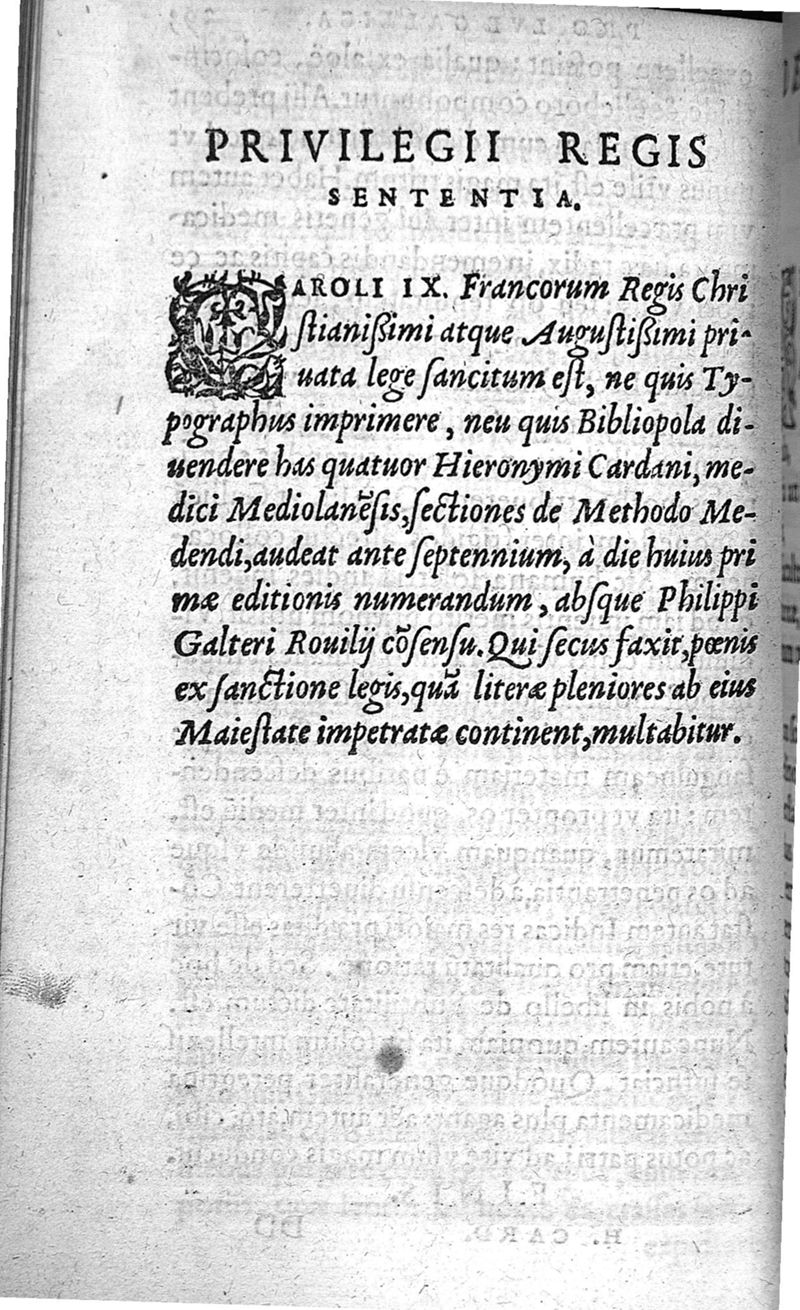 PRIVILEGII REGIS
SENTENTIA.
CAROLI IX. Francorum Regis Chri
ſtianißimi atque Auguſtißimi pri-
uata lege ſancitum eſt, ne quis Ty-
pographus imprimere, neu quis Bibliopola di-
uendere has quatuor Hieronymi Cardani, me-
dici Mediolanẽſis, ſectiones de Methodo Me-
dendi, audeat ante ſeptennium, à die huius pri
mæ editionis numerandum, abſque Philippi
Galteri Rouilij cõſenſu. Qui ſecus faxit, pœnis
ex ſanctione legis, quã literæ pleniores ab eius
Maieſtate impetratæ continent, multabitur.